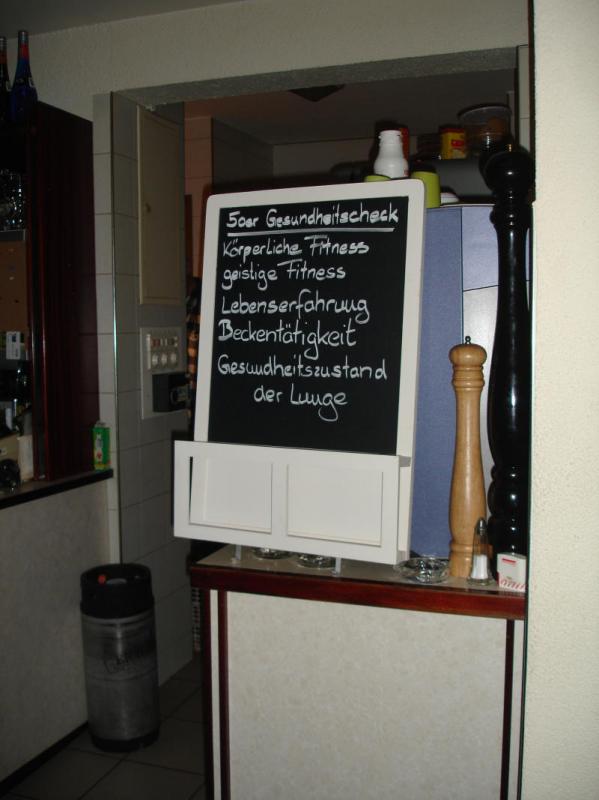 50er Gesundheitscheck
Körperliche Fitness
geistige Fitness
Lebenserfahrung
Beckentätigkeit
Gesundheitszustand
der Lunge